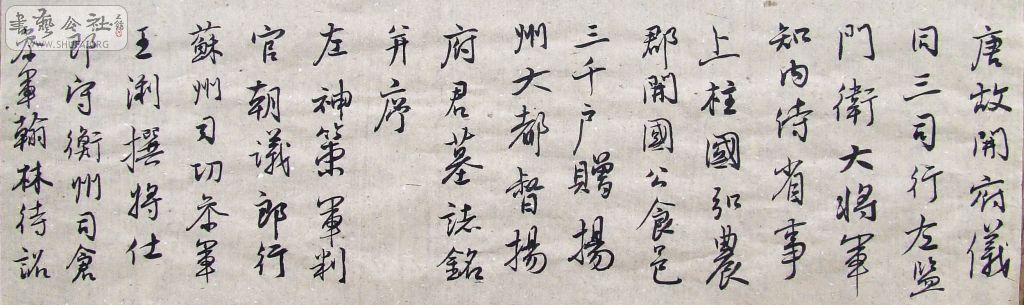 唐故開府儀
同三司行左監
門衛大將軍
知內侍省事
上柱國弘農
郡開國公食邑
三千戶贈揚
州大都督揚
府君墓誌銘
并序
左神策軍判
官朝議郎行
蘇州司功參軍
王渕撰將仕
郎守衡州司倉
參軍翰林待詔
書藝公社
WWW.SHUFA.ORG